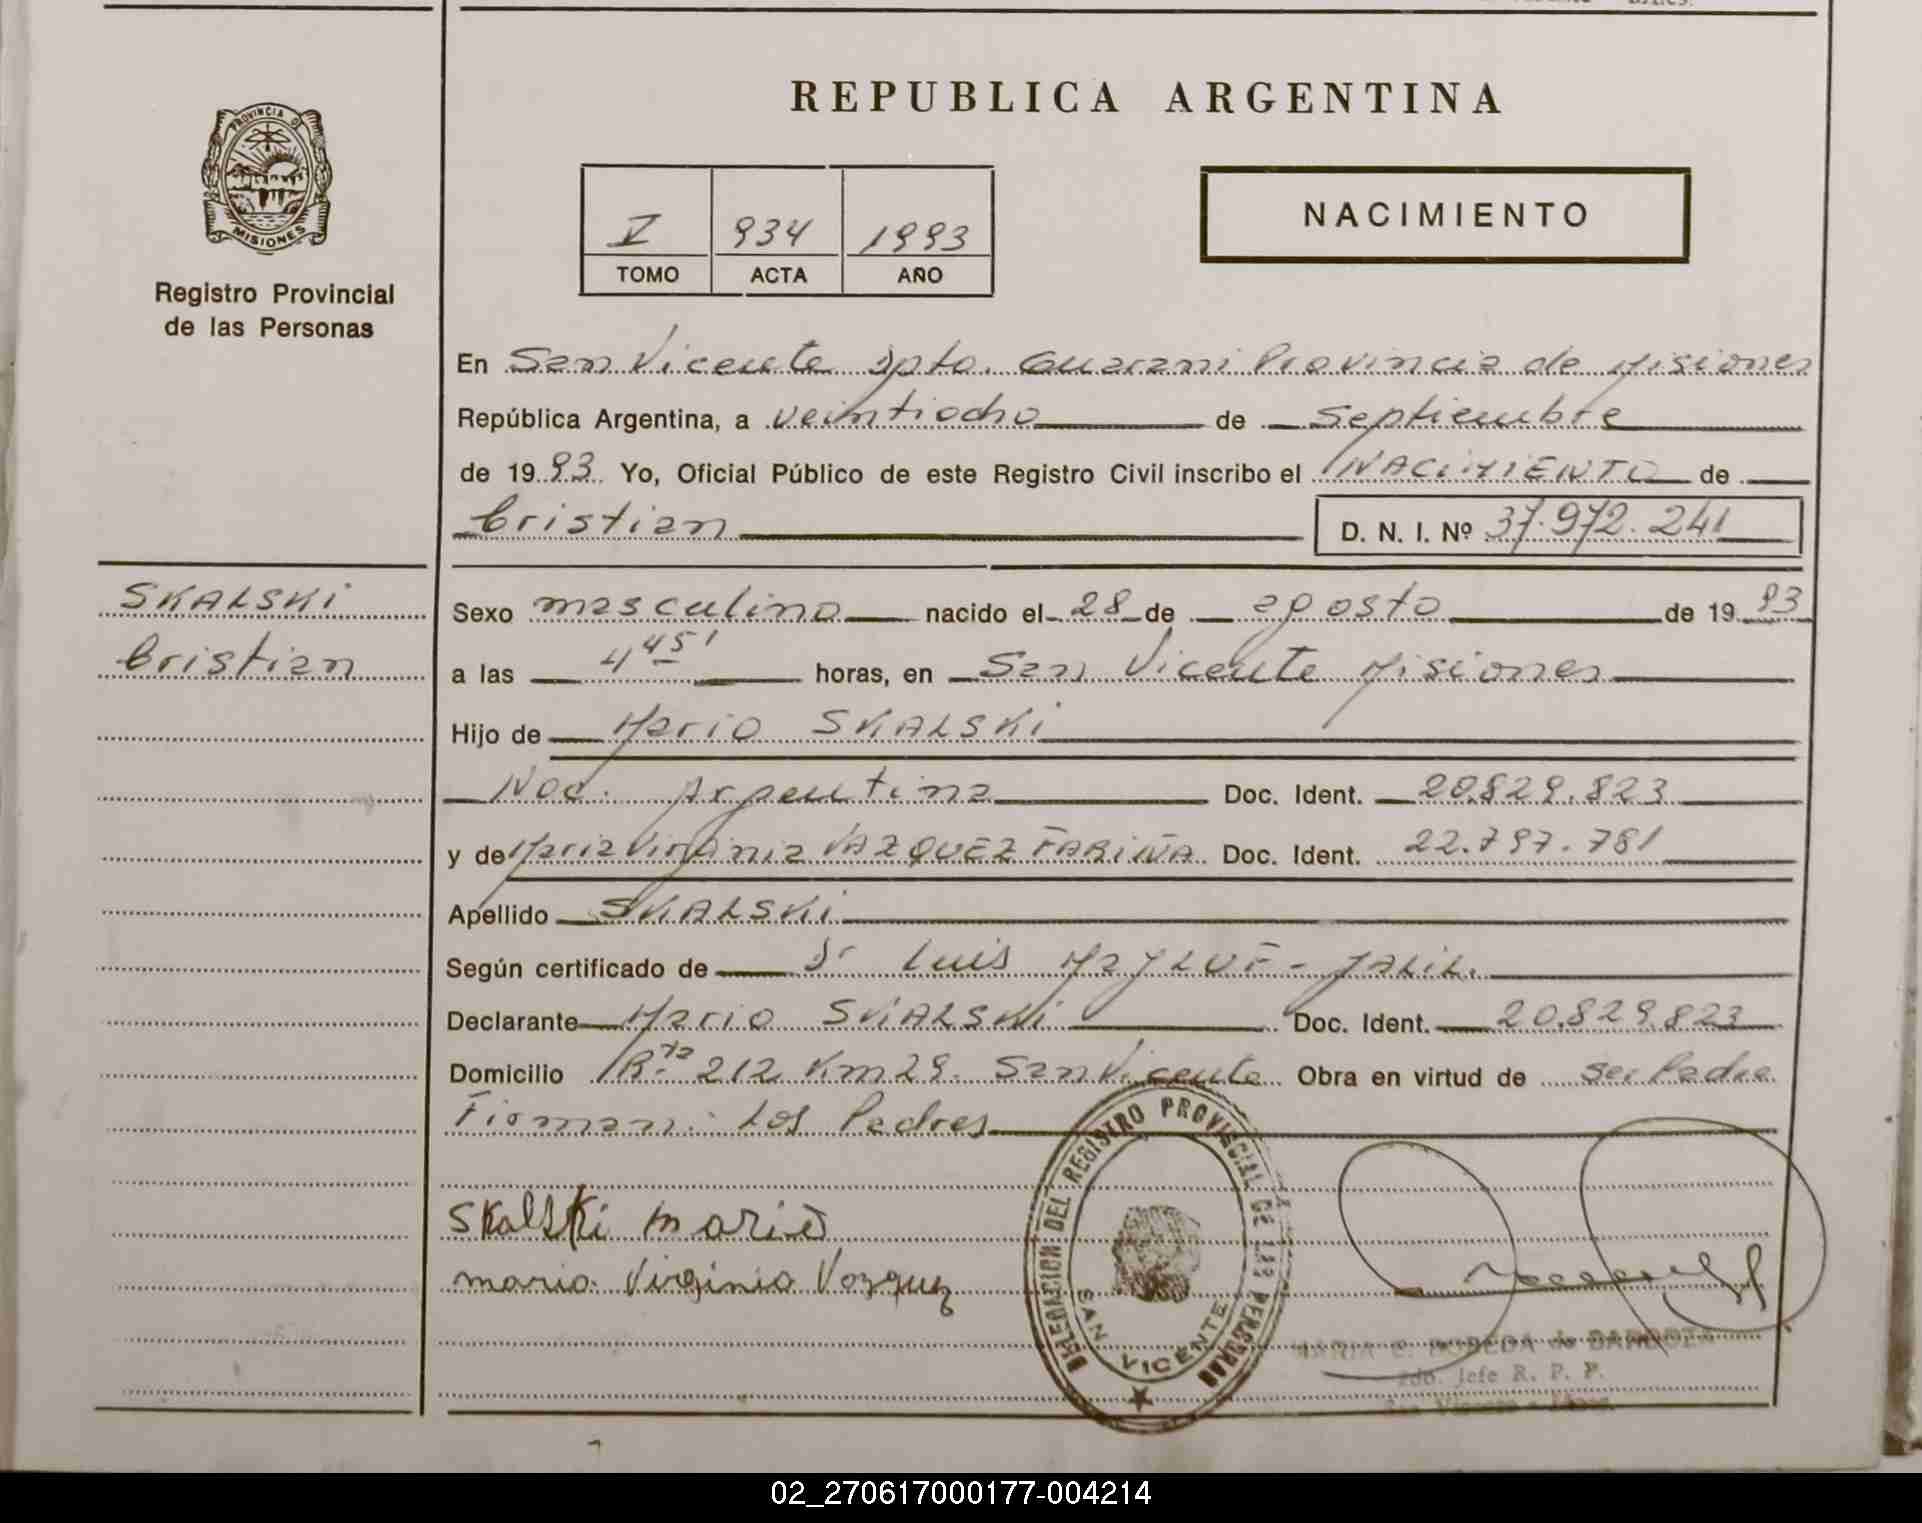 REPUBLICA ARGENTINA
PROVINCIA D
MISIONES
Registro Provincial
de las Personas
V 934 1993
TOMO ACTA AÑO
NACIMIENTO
En San Vicente Dpto. Guarani Provincia de Misiones
República Argentina, a veintiocho de septiembre
de 1993 Yo, Oficial Público de este Registro Civil inscribo el NACIMIENTO de
Cristian D. N. I. Nº 37.972.241
SKALSKI
Cristian
Sexo masculino nacido el 28 de agosto de 1993
a las 4 45' horas, en San Vicente Misiones
Hijo de Mario SKALSKI
Nac. Argentina Doc. Ident. 20.829.823
y de Maria Virginia VAZQUEZ FARIÑA Doc. Ident. 22.797.781
Apellido SKALSKI
Según certificado de Dr Luis JALIL.
Declarante Mario SKALSKI Doc. Ident. 20.829.823
Domicilio Rta 212 Km 29. San Vicente Obra en virtud de ser Padre
Firman: Los Padres
Skalski mario
maria Virginia Vazquez
DELEGACION DEL REGISTRO PROVINCIAL DE LAS PERSONAS
SAN VICENTE
MARIA E. de BARBOZA
2do. Jefe R. P. P.
San Vicente
02_270617000177-004214